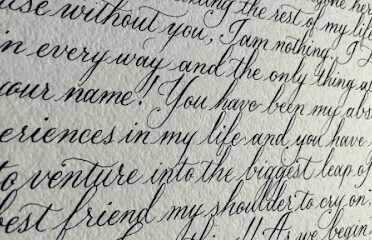 the rest of my life
use without you, I am nothing. I
in every way and the only thing
your name! You have been my abs
eriences in my life and you have
to venture into the biggest leap of
best friend my shoulder to cry on,
!! As we begin